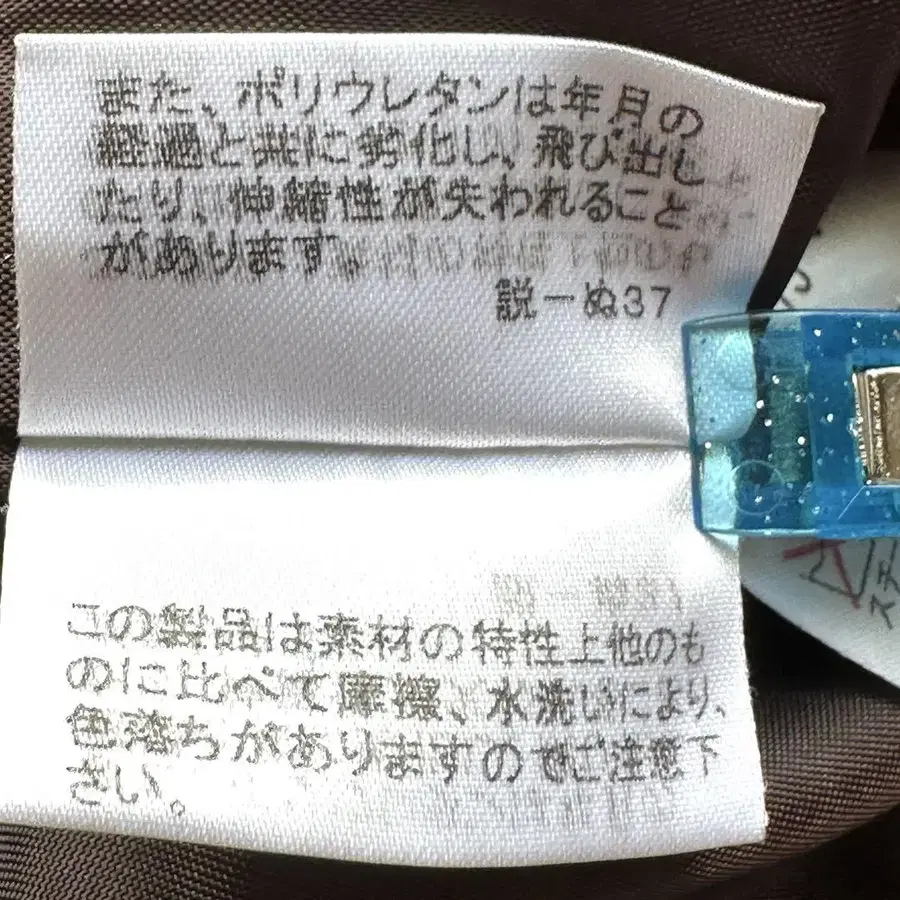 また、ポリウレタンは年月の
経過と共に劣化し、飛び出し
たり、伸縮性が失われること
があります。
説ーぬ37
この製品は素材の特性上他のも
のに比べて摩擦、水洗いにより、
色落ちがありますのでご注意下
さい。
ステ